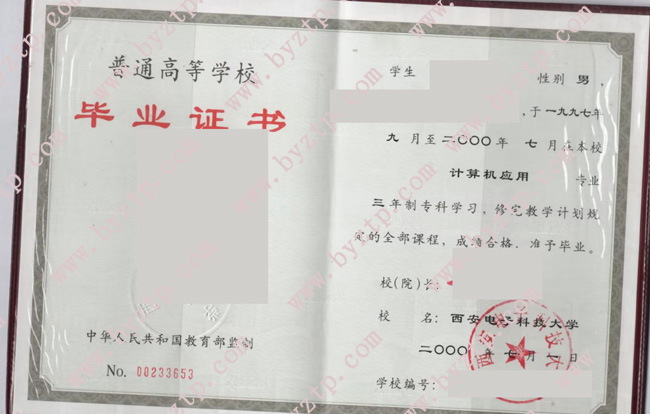 普通高等学校
毕业证书
中华人民共和国教育部监制
No. 00233653
学生 性别 男 ,
,于一九九七年
九 月至二〇〇〇年 七 月在本校
计算机应用 专业
三 年制专科学习,修完教学计划规
定的全部课程,成绩合格,准予毕业。
校(院)长:
校 名:西安电子科技大学
二〇〇〇年七月一日
学校编号:
www.byztp.com